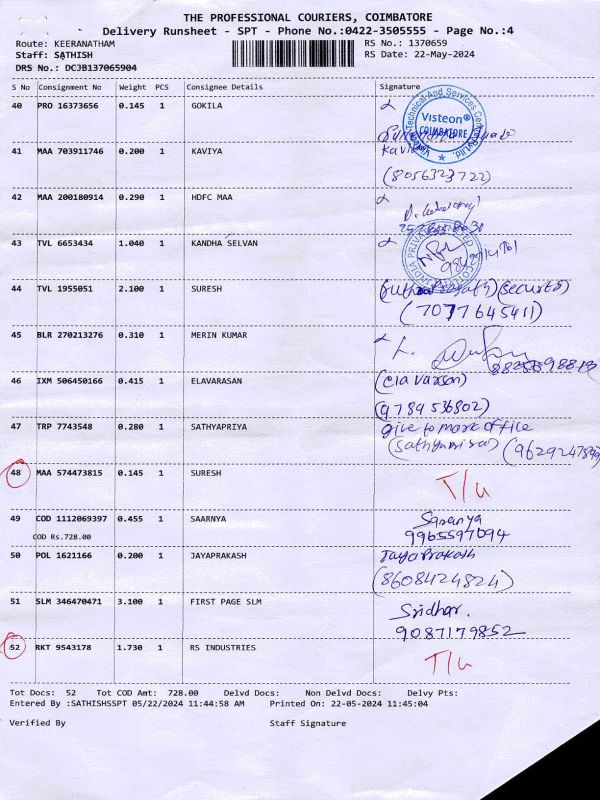 THE PROFESSIONAL COURIERS, COIMBATORE
Delivery Runsheet - SPT - Phone No.:0422-3505555 - Page No.:4
Route: KEERANATHAM RS No.: 1370659
Staff: SATHISH RS Date: 22-May-2024
DRS No.: DCJB137065904
S No Consignment No Weight PCS Consignee Details Signature
40 PRO 16373656 0.145 1 GOKILA
Technical And Services
Visteon®
COIMBATORE
41 MAA 703911746 0.200 1 KAVIYA
(8056323722)
42 MAA 200180914 0.290 1 HDFC MAA
43 TVL 6653434 1.040 1 KANDHA SELVAN
INDIA PRIVATE LIMITED
44 TVL 1955051 2.100 1 SURESH
(7077645411)
45 BLR 270213276 0.310 1 MERIN KUMAR
46 IXM 506450166 0.415 1 ELAVARASAN (elavarasan)
(9789536802)
47 TRP 7743548 0.280 1 SATHYAPRIYA give to mark office
48 MAA 574473815 0.145 1 SURESH T/u
49 COD 1112069397 0.455 1 SAARNYA Saranya
COD Rs.728.00 9965597094
50 POL 1621166 0.200 1 JAYAPRAKASH JayaPrakash
(8608424824)
51 SLM 346470471 3.100 1 FIRST PAGE SLM Sridhar.
9087179852
52 RKT 9543178 1.730 1 RS INDUSTRIES T/u
Tot Docs: 52 Tot COD Amt: 728.00 Delvd Docs: Non Delvd Docs: Delvy Pts:
Entered By :SATHISHSSPT 05/22/2024 11:44:58 AM Printed On: 22-05-2024 11:45:04
Verified By Staff Signature